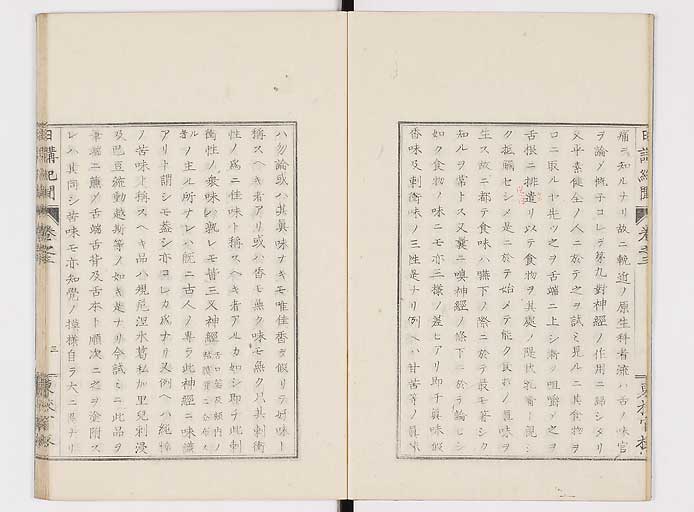 日講紀聞 卷之三
痛ヲ知ルナリ故ニ輓近ノ原生科者流ハ舌ノ味官
ヲ論ノ悉クコレヲ第九對神經ノ作用ニ歸シタリ
又平素健全ノ人ニ於テ之ヲ試ミ見ルニ其食物ヲ
口ニ取ルヤ先ツ之ヲ舌端ニ上シ漸ク咀嚼メ之ヲ
舌根ニ排遣リ以テ食物ヲ其處ノ乳嘴ニ親シ
ク抵觸セシメ是ニ於テ始メテ能ク食物ノ眞味ヲ
生ス故ニ都テ食味ハ嚥下ノ際ニ於テ最モ著シク
知ルヲ常トス又曩ニ嗅神經ノ條下ニ於テ論セシ
如ク食物ノ味ニモ亦三樣ノ差ヒアリ即チ眞味假
香味及刺衝味ノ三性是ナリ例ヘハ甘苦等ノ眞味
ハ勿論或ハ其眞味ナキモ唯佳香ヲ假リテ好味ト
稱スヘキ者アリ或ハ香モ無ク味モ無ク只其刺衝
性ノ爲ニ佳味ト稱スヘキ者アルカ如シ即チ此刺
衝性ノ衆味ハ孰レモ皆三叉神經
ルノ主ル所ナレハ既ニ古人ノ專ラ此神經ニ味識
アリト謂シモ蓋シ亦コレカ爲ナリ又例ヘハ純粹
ノ苦味ト稱スヘキ品ハ規尼涅水葛私加里兒刺浸
及巴豆 等ノ如キ是ナリ今試ミニ此品ヲ
筆端ニ蘸ノ舌端舌背及舌本ト順次ニ之ヲ塗附ス
レハ其同シ苦味モ亦知覺ノ模樣自ラ大ニ異ナリ
日講紀聞 卷之三 三